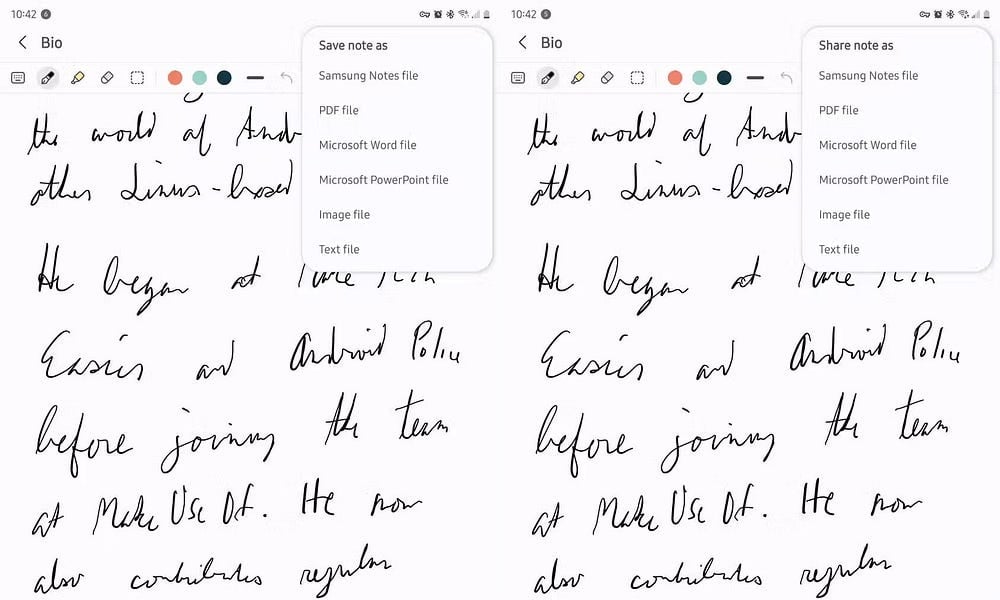 10:42 6
Bio
Save note as
Samsung Notes file
PDF file
Microsoft Word file
Microsoft PowerPoint file
Image file
Text file
the world of And
other Linux-based
He began at
Easier and Android Police
before joining the team
at Make Use Of. He now
also contributes regular
10:42
Bio
Share note as
Samsung Notes file
PDF file
Microsoft Word file
Microsoft PowerPoint file
Image file
Text file
the world of And
other Linux-based
He began at
Easier and Android Police
before joining the team
at Make Use Of. He now
also contributes regular